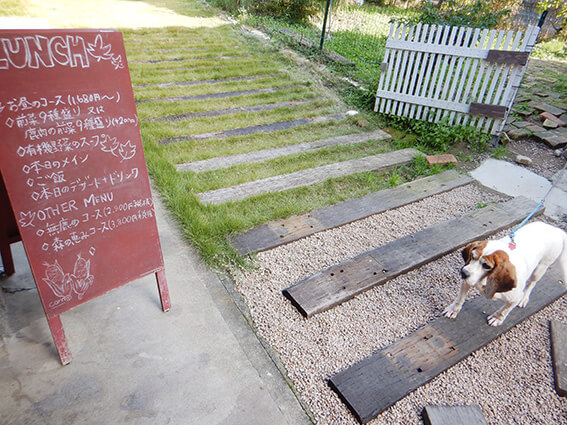 LUNCH
お昼のコース(1,680円〜)
◇前菜9種盛り 又は
鹿肉の前菜9種盛り(+200円)
◇有機野菜のスープ
◇本日のメイン
◇ご飯
◇本日のデザート+ドリンク
OTHER MENU
◇無庵のコース(2,900円
◇森の恵みコース(3,800円